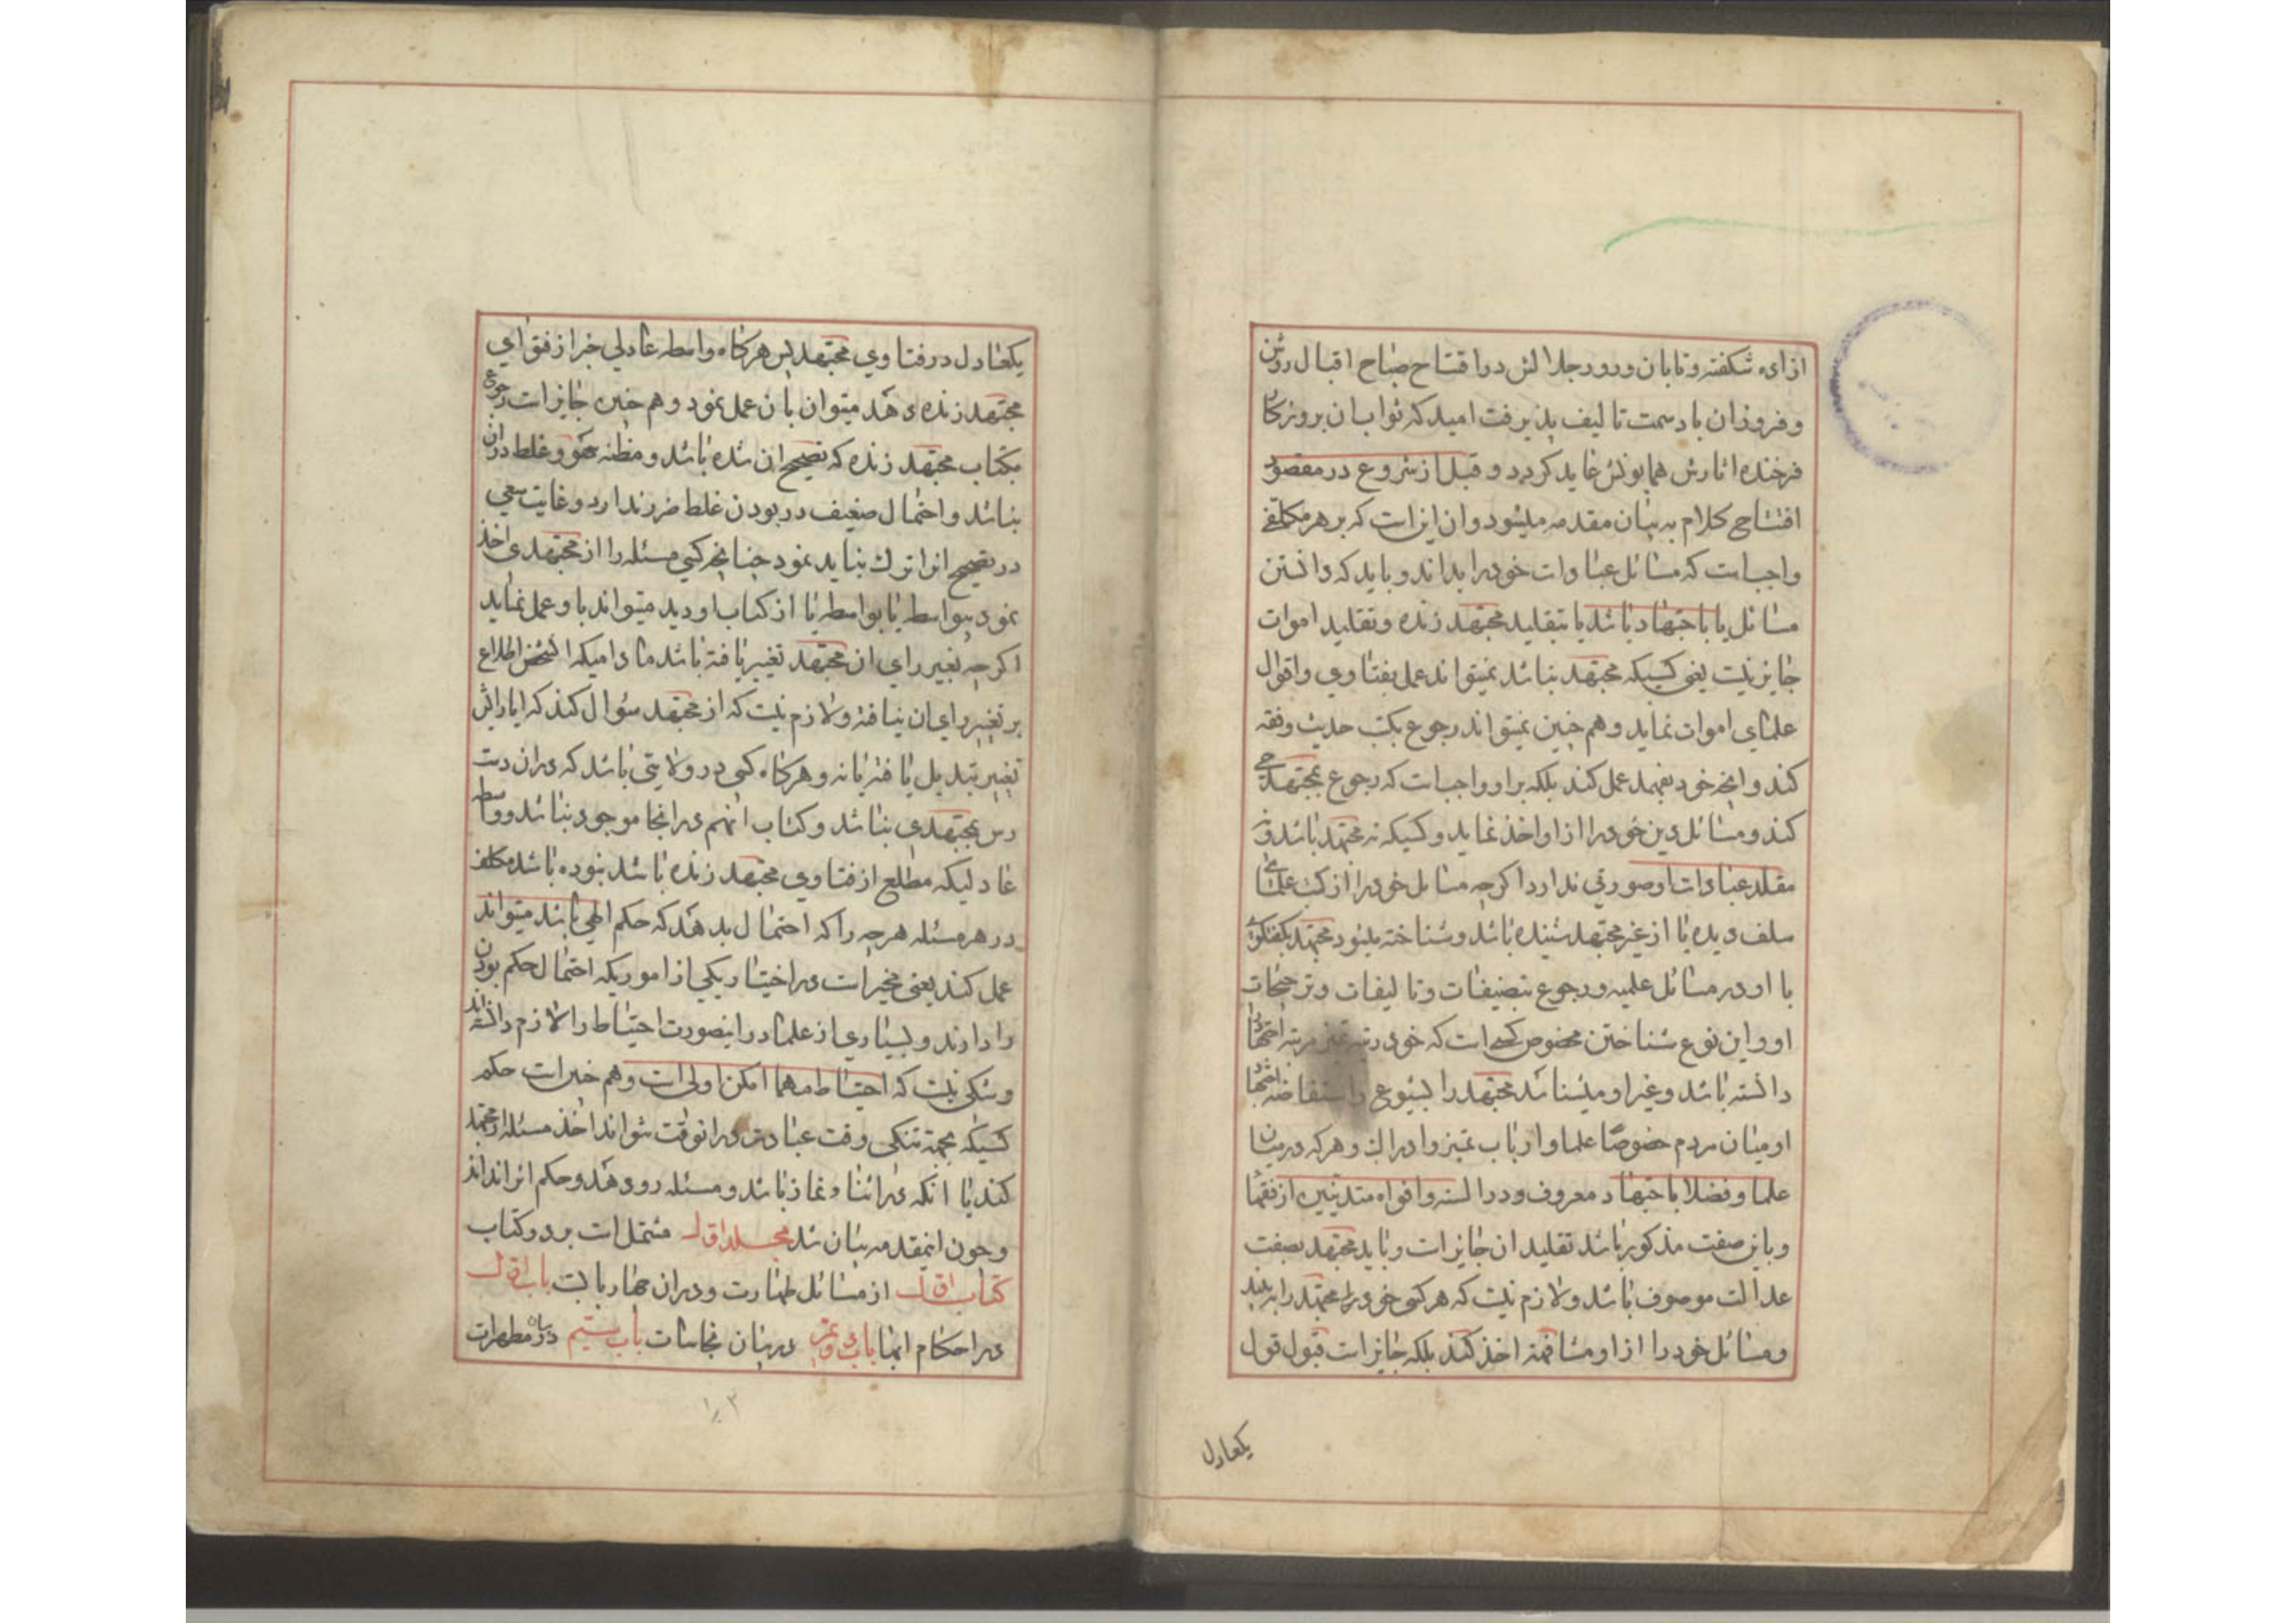 ازای شکفته و تابان و روز جلالش در افتتاح صباح اقبال روشن
و فروزان باد سمت تالیف پذیرفت امید که ثواب ان بروزکار
فرخنده اثارش همایونش عاید کردد و قبل از شروع در مقصود
افتتاح کلام به بیان مقدمه میشود و ان این است که بر هر مکلفی
واجبست که مسائل عبادات خود را بداند و باید که دانستن
مسائل یا باجتهاد باشد یا بتقلید مجتهد زنده و تقلید اموات
جایز نیست یعنی کسیکه مجتهد نباشد نمیتواند عمل بفتاوی و اقوال
علمای اموات نماید و هم چنین نمیتواند رجوع بکتب حدیث و فقه
کند و انچه خود بفهمد عمل کند بلکه بر او واجبست که رجوع بمجتهد حی
کند و مسائل دین خود را از او اخذ نماید و کسیکه نه مجتهد باشد و نه
مقلد عبادات او صورتی ندارد اکرچه مسائل خود را از کتب علمای
سلف دیده یا از غیر مجتهد شنیده باشد و شناخته میشود مجتهد بکفتکوی
با او در مسائل علمیه و رجوع بتصنیفات و تالیفات و ترجیحات
او و این نوع شناختن مخصوص کسی است که خود رتبه تمیز مرتبه اجتهاد
داشته باشد و غیر او میشناسد مجتهد را بشیوع و استفاضه اجتهاد
او میان مردم خصوصا علما و ارباب تمیز و ادراک و هر که در میان
علما و فضلا باجتهاد معروف و در السنه و افواه متدینین از فقها
و باین صفت مذکور باشد تقلید ان جایز است و باید مجتهد بصفت
عدالت موصوف باشد و لازم نیست که هر کس خود مجتهد را به بیند
و مسائل خود را از او مشافهة اخذ کند بلکه جایز است قبول قول
یکعادل
یکعادل در فتاوی مجتهد پس هرکاه واسطه عادلی خبر از فتوای
مجتهد زنده دهد میتوان بان عمل نمود و هم چنین جایز است رجوع
بکتاب مجتهد زنده که تصحیح ان شده باشد و مظنه سهو و غلط در ان
نباشد و احتمال ضعیف در بودن غلط ضرر ندارد و غایت سعی
در تصحیح انرا ترک نباید نمود چنانچه کسی مسئله را از مجتهدی اخذ
نمود بیواسطه یا بواسطه یا از کتاب او دید میتواند باو عمل نماید
اکرچه تغییر رای ان مجتهد تغییر یافته باشد مادامیکه انشخص اطلاع
بر تغییر رای ان نیافته و لازم نیست که از مجتهد سئوال کند که ایا رایش
تغییر تبدیل یافته یا نه و هرکاه کسی در ولایتی باشد که در ان دست
رس بمجتهدی نباشد و کتاب انهم در انجا موجود نباشد و واسطه
عادلیکه مطلع از فتاوی مجتهد زنده باشد نبوده باشد مکلف
در هر مسئله هرچه را که احتمال بدهد که حکم الهی باشد میتواند
عمل کند یعنی مخیر است در اختیار یکی از اموریکه احتمال حکم بودن
را دارند و بسیاری از علما در اینصورت احتیاط را لازم دانسته‌اند
و شکی نیست که احتیاط مهما امکن اولی است و هم چنین است حکم
کسیکه بجهة تنکی وقت عبادت در انوقت نتواند اخذ مسئله از مجتهد
کند یا انکه در اثناء نماز باشد و مسئله رو دهد و حکم انرا نداند
و چون اینمقدمه بیان شد مجلد اول مشتمل است بر دو کتاب
کتاب اول از مسائل طهارت و در ان چهار بابست باب اول
در احکام ابها باب دویم در بیان نجاسات باب سیم در بیان مطهرات